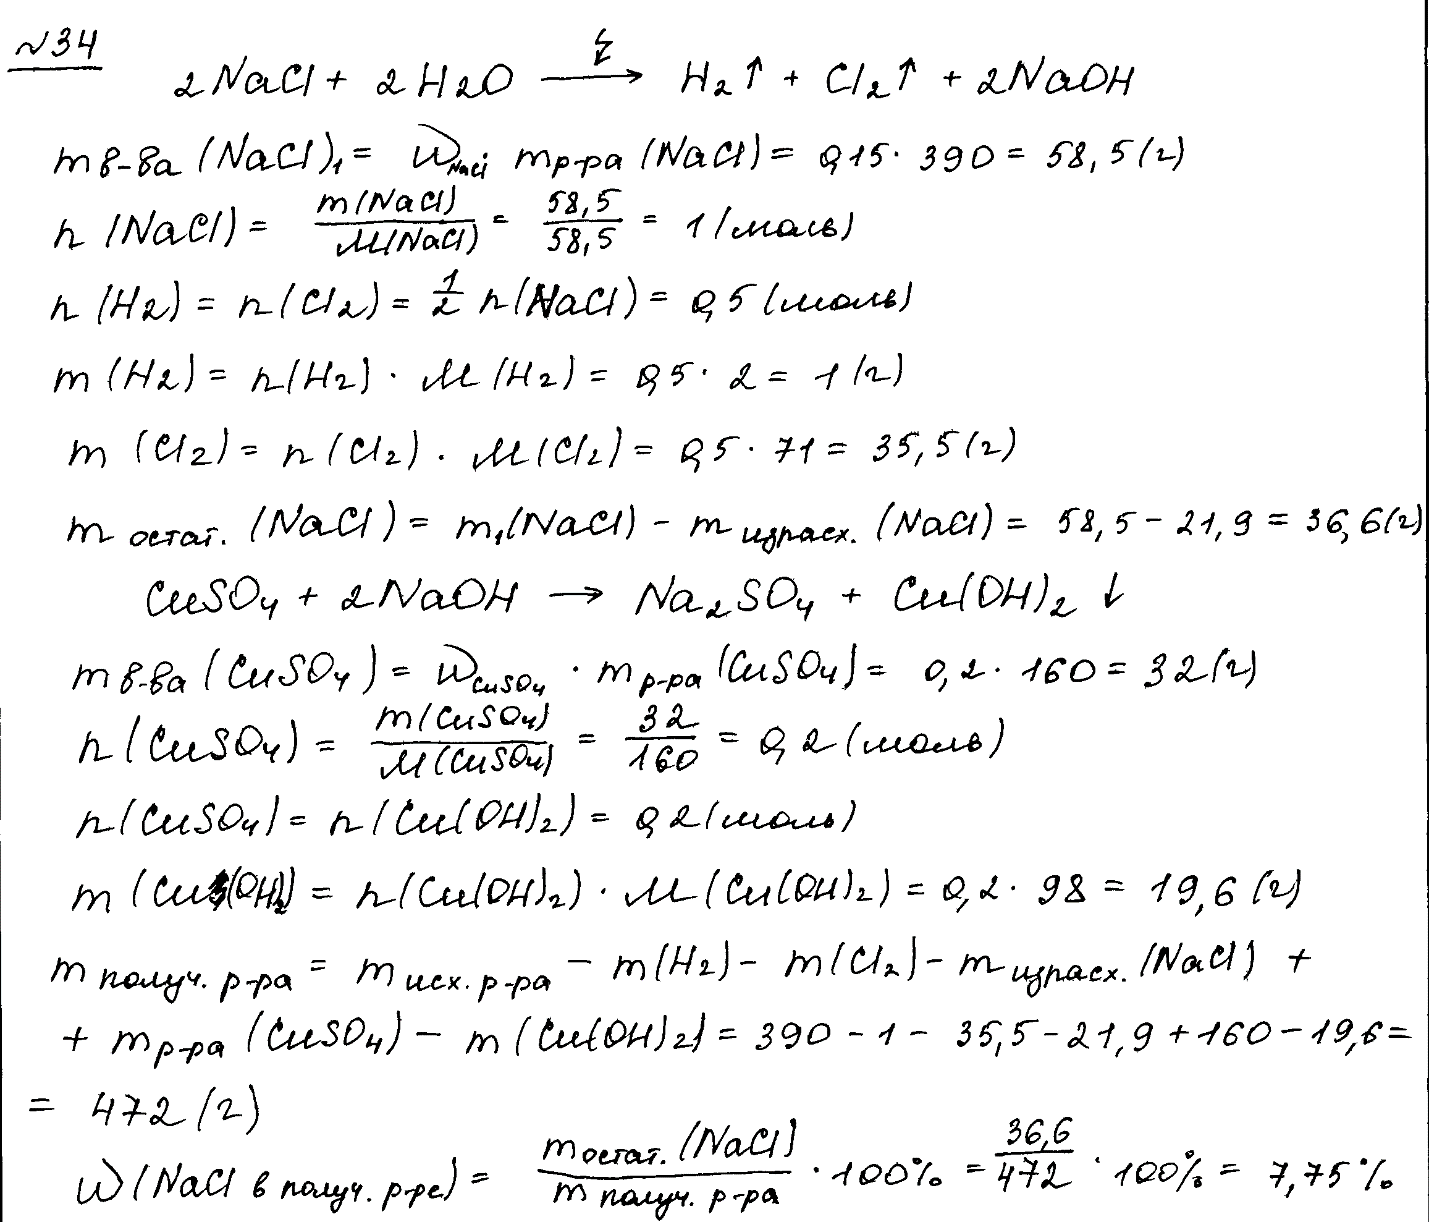 №34
2NaCl + 2H2O ⟶ H2↑ + Cl2↑ + 2NaOH
m в-ва (NaCl)1 = ωNaCl mр-ра (NaCl) = 0,15 · 390 = 58,5 (г)
n (NaCl) = m(NaCl)/M(NaCl) = 58,5/58,5 = 1 (моль)
n (H2) = n (Cl2) = 1/2 n (NaCl) = 0,5 (моль)
m (H2) = n(H2) · M (H2) = 0,5 · 2 = 1 (г)
m (Cl2) = n (Cl2) · M(Cl2) = 0,5 · 71 = 35,5 (г)
m остат. (NaCl) = m1(NaCl) − m израсх. (NaCl) = 58,5 − 21,9 = 36,6(г)
CuSO4 + 2NaOH ⟶ Na2SO4 + Cu(OH)2 ↓
m в-ва (CuSO4) = ωCuSO4 · m р-ра (CuSO4) = 0,2 · 160 = 32 (г)
n (CuSO4) = m(CuSO4)/M(CuSO4) = 32/160 = 0,2 (моль)
n (CuSO4) = n (Cu(OH)2) = 0,2 (моль)
m (Cu(OH)2) = n(Cu(OH)2) · M (Cu(OH)2) = 0,2 · 98 = 19,6 (г)
m получ. р-ра = m исх. р-ра − m(H2) − m(Cl2) − m израсх. (NaCl) +
+ m р-ра (CuSO4) − m (Cu(OH)2) = 390 − 1 − 35,5 − 21,9 + 160 − 19,6 =
= 472 (г)
ω (NaCl в получ. р-ре) = m остат. (NaCl)/m получ. р-ра · 100% = 36,6/472 · 100% = 7,75%